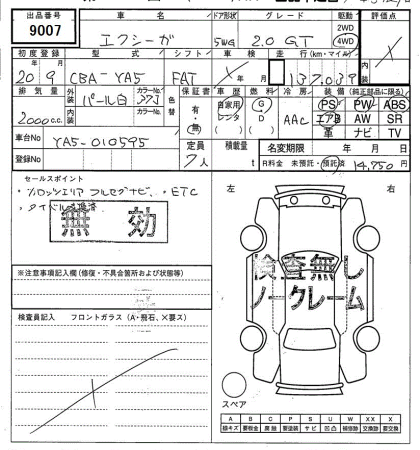 出品番号 車名 ドア形状 グレード 駆動 評価点
9007 エクシーガ 5WG 2.0 GT 2WD 4WD
初度登録 型式 シフト 車検 走行(km・マイル)
20 9 CBA-YA5 FAT 年 月 137,039
排気量 外装 パール白 カラーNo. 37J 色替 保証書 車歴 燃料 冷房 装備(純正部品に限る)
2000c.c. 内装 カラーNo. 有・無 自家用 レンタ G D AAC PS PW ABS
エアB AW SR
革 ナビ TV
車台No YA5-010595 定員 7人 積載量 t 名変期限 年 月 日
登録No R料金 未預託・預託済 14,750円
セールスポイント
・ブロッツェリア フルセグナビ、・ETC
・タイベル
無効
※注意事項記入欄(修復・不具合箇所および状態等)
検査員記入 フロントガラス(A・飛石、X要ス)
左 右
検査無し
ノークレーム
スペア
A B C P S U W X XX
線キズ 要板金 腐蝕 要塗装 サビ 凹凸 補修跡 交換跡 要交換